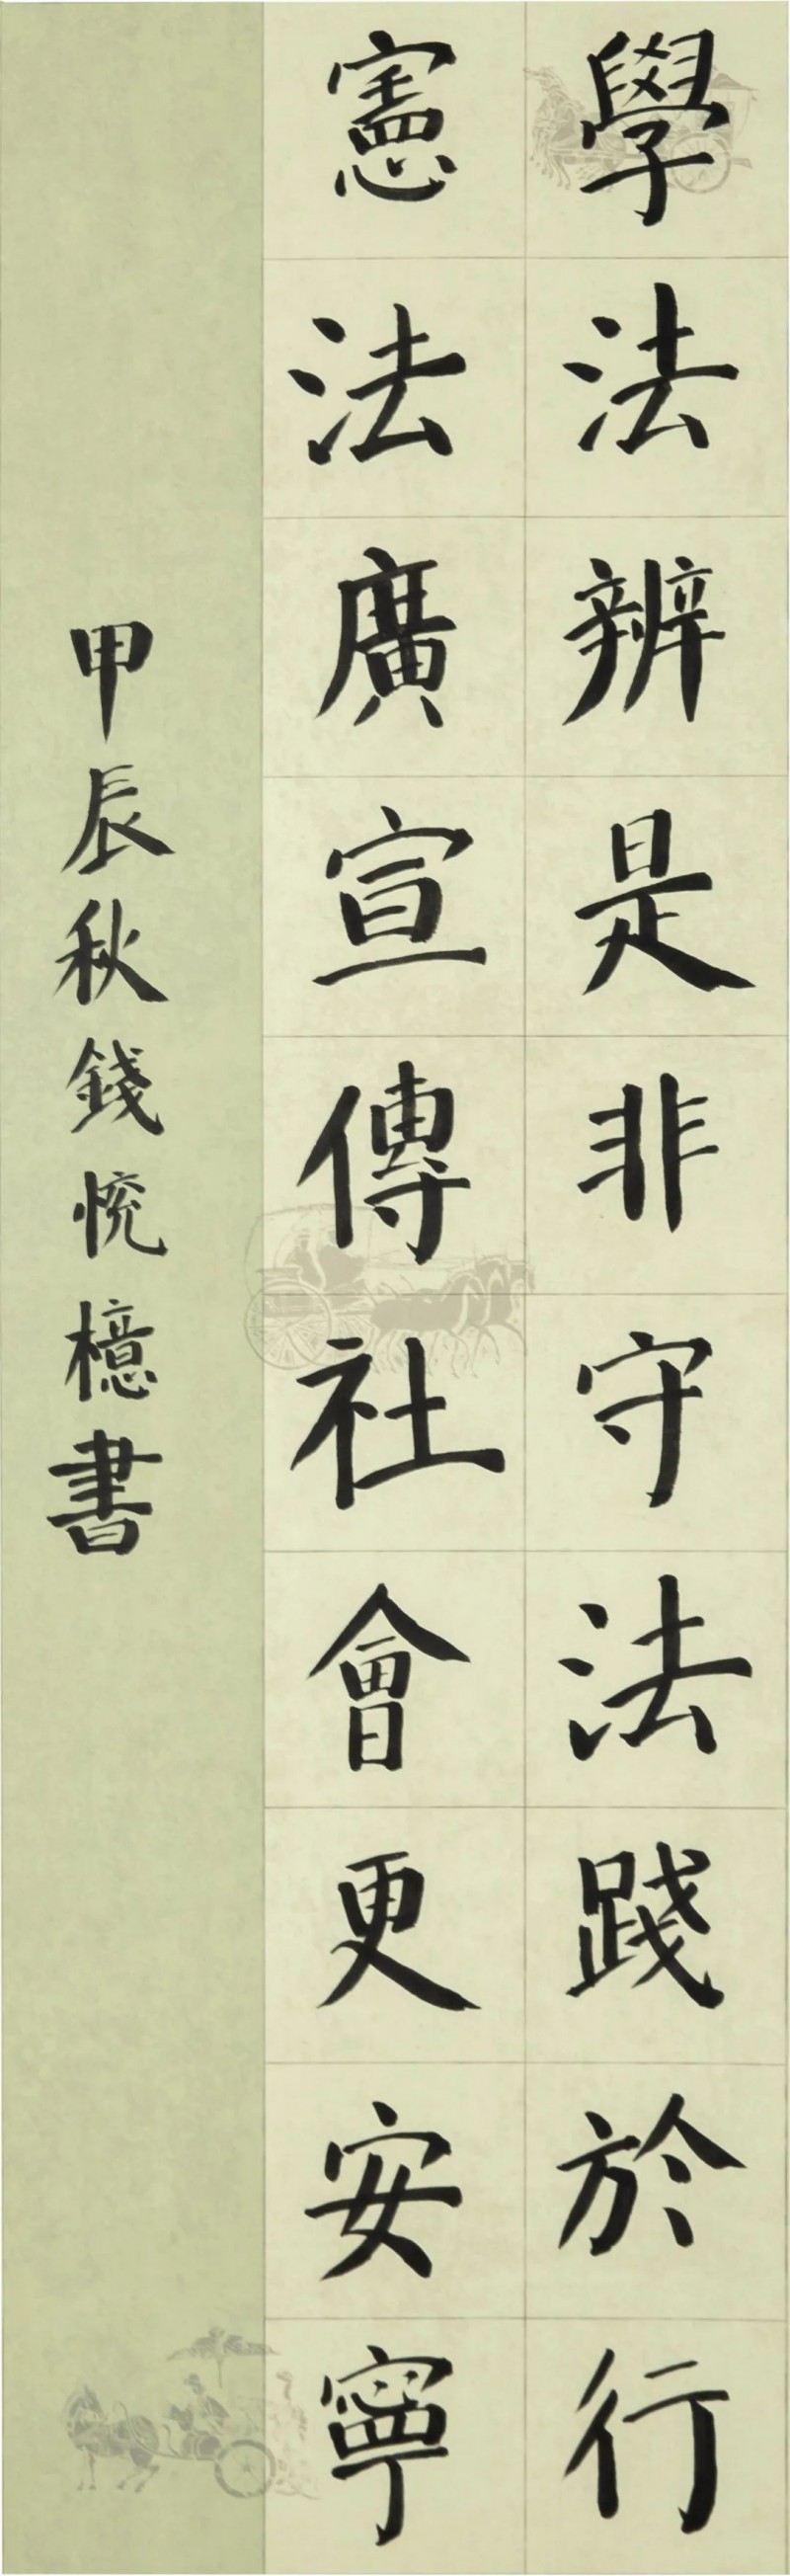 學法辨是非守法踐於行
憲法廣宣傳社會更安寧
甲辰秋錢悗檍書